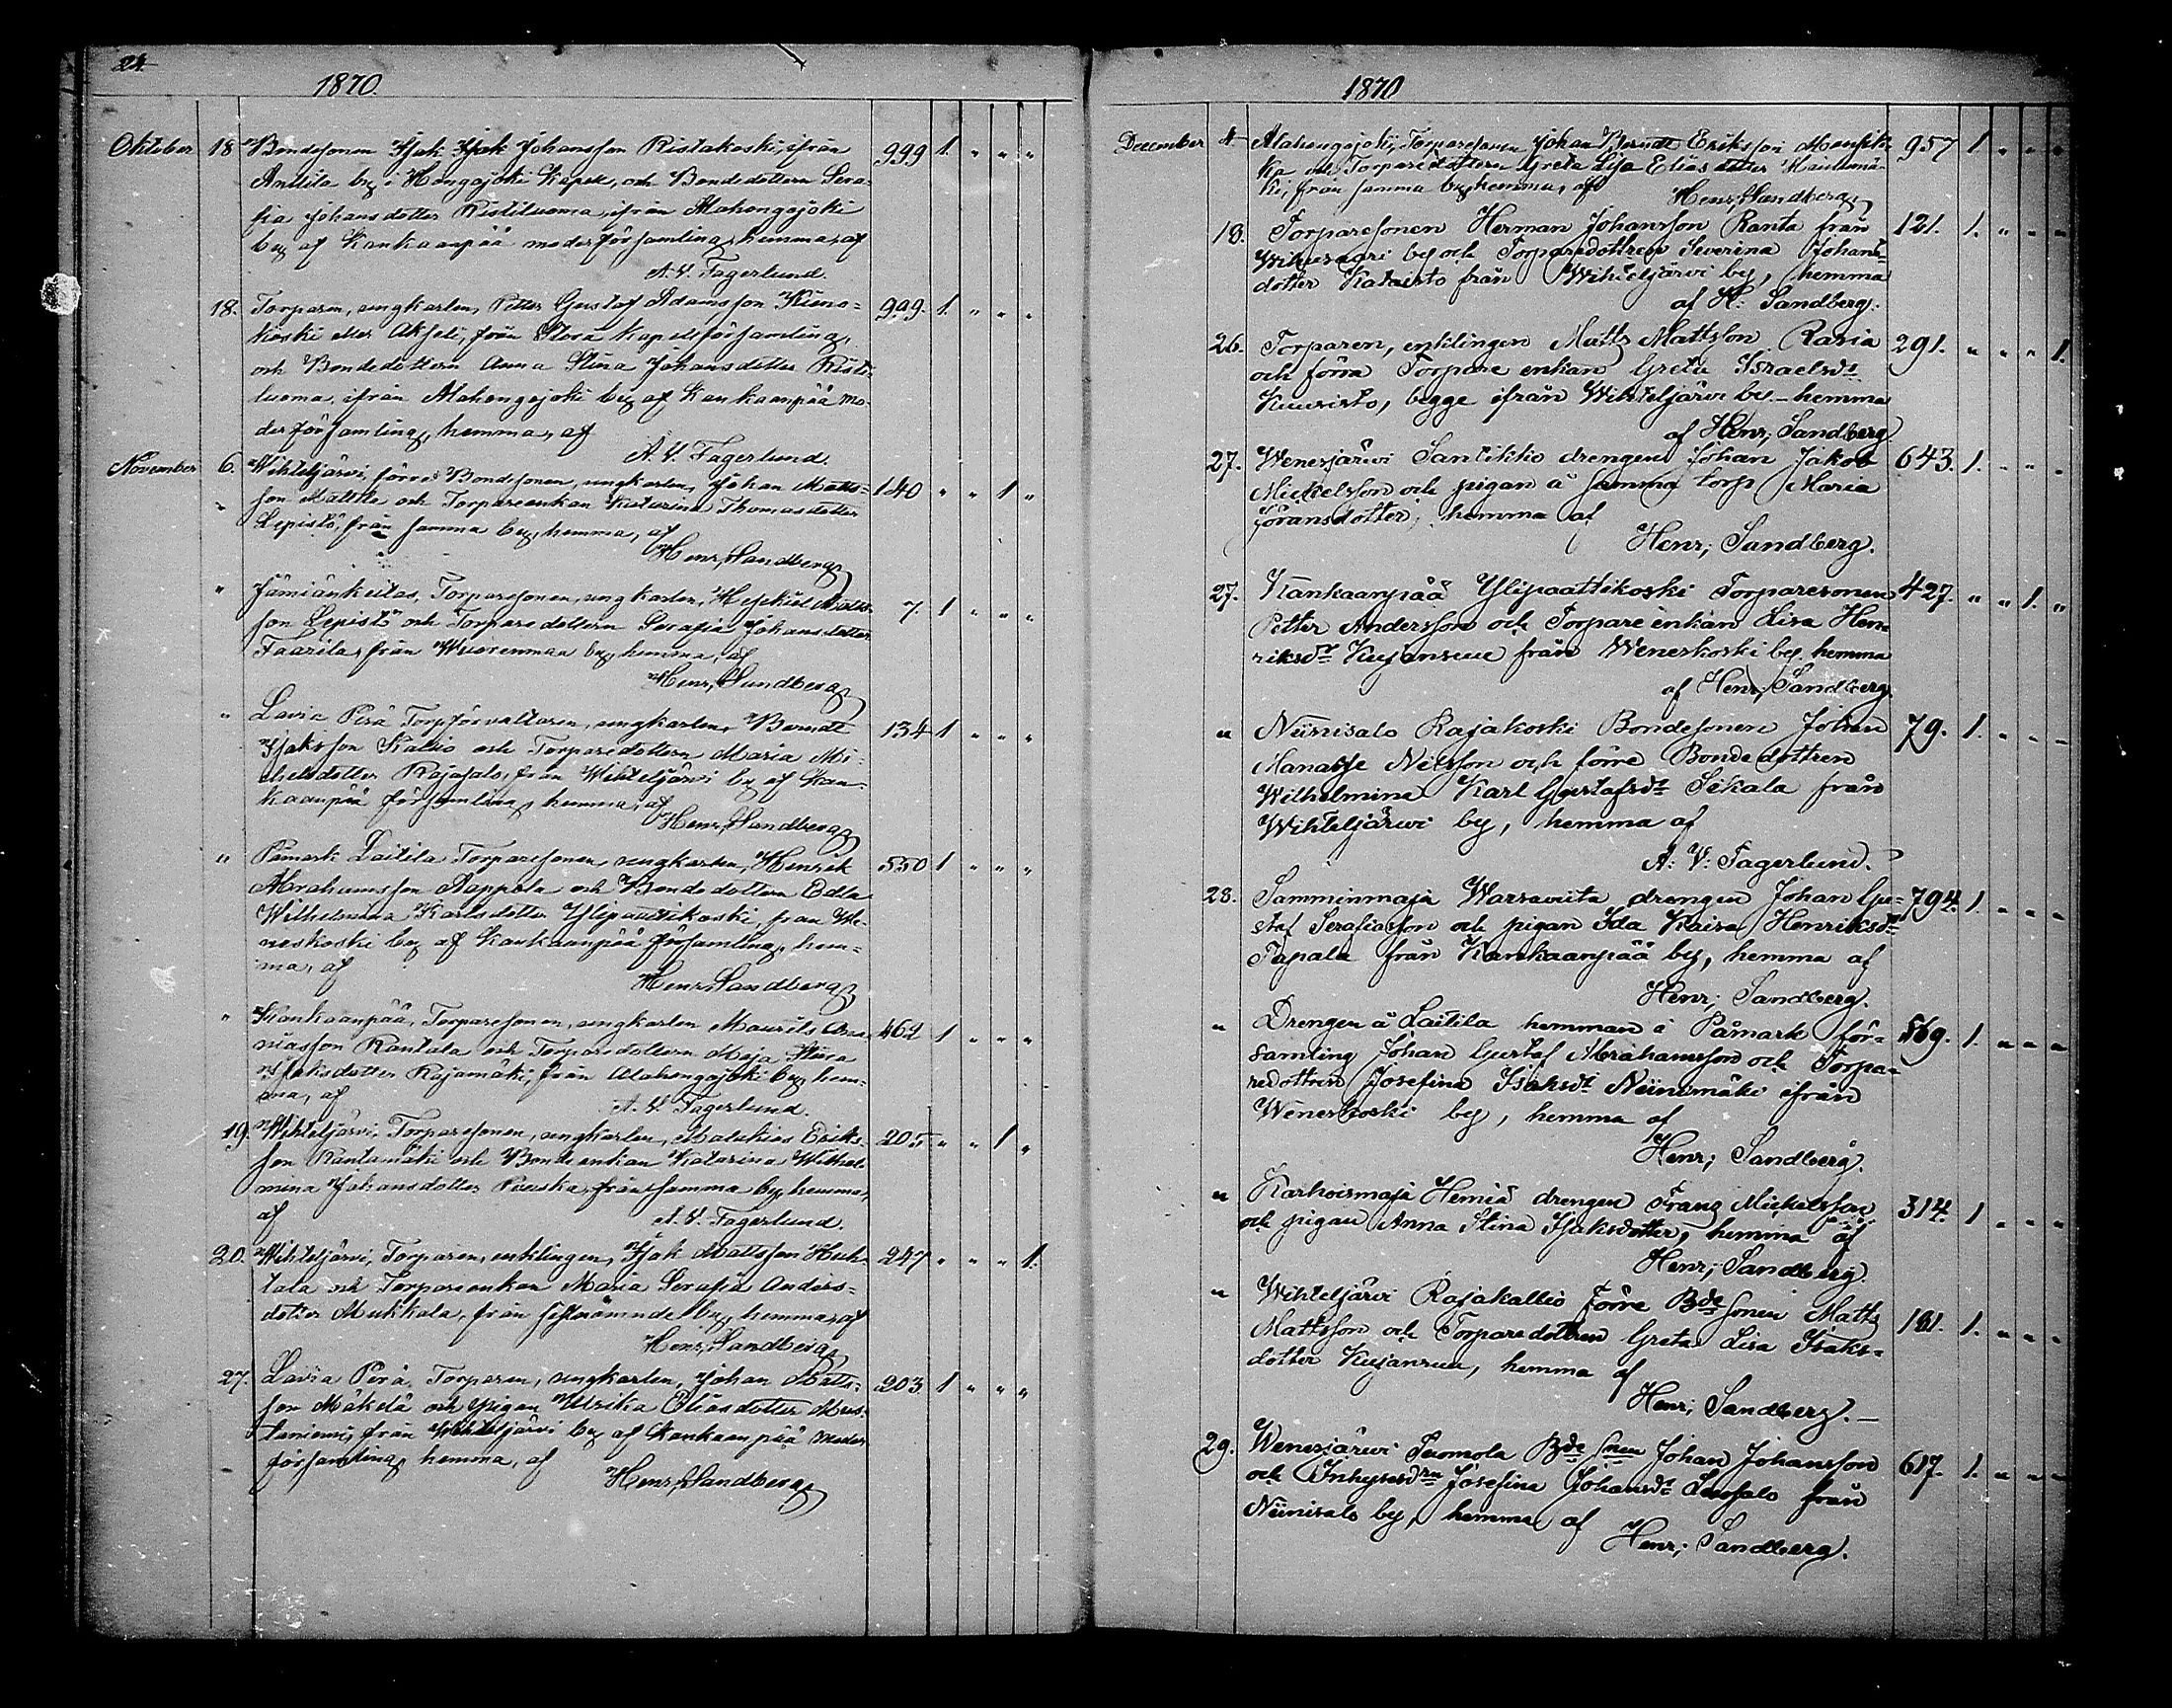 24.
1870.
Oktober 18 Bondesonen Isak Isak Johansson Ristakoski, ifrån 999 1. " " "
Anttila by i Hongojoki Kapell, och Bondedottern Sera-
fia Johansdotter Ristiluoma, ifrån Alahongojoki
by af Kankaanpää moderförsamling, hemma, af
A. V. Fagerlund.
18. Torparen, ungkarlen, Petter Gustaf Adamsson Kieno- 999. 1. " " "
koski eller Akseli, från Storå Kapellförsamling,
och Bondedottern Anna Stina Johansdotter Risti-
luoma, ifrån Alahongojoki by af Kankaanpää mo-
derförsamling, hemma, af
A. V. Fagerlund.
November 6. Wihteljärvi, förre Bondesonen, ungkarlen, Johan Matts- 140 " " 1 "
son Mattila och Torpareenkan Katarina Thomasdotter
Lepistö, från samma by, hemma, af
Henr; Sandberg
" Jämiänkeitas, Torparesonen, ungkarlen, Heskiel Matts- 7. 1 " " "
son Lepistö och Torparedottern Serafia Johansdotter
Faarila, från Wuorenmaa by, hemma, af
Henr; Sandberg
" Lavia Perä Torpförvaltaren, ungkarlen, Berndt 134 1 " " "
Isaksson Kallio och Torparedottern Maria Mi-
chelsdotter Rajasalo, från Wihteljärvi by af Kan-
kaanpää församling, hemma, af
Henr; Sandberg
" Påmark Laitila Torparesonen, ungkarlen, Henrik 550 1 " " "
Abrahamsson Aappola och Bondedottern Edla
Wilhelmina Karlsdotter Ylipaattikoski, från We-
neskoski by af Kankaanpää församling, hem-
ma, af
Henr; Sandberg
" Kankaanpää, Torparesonen, ungkarlen Maurits Ana- 462 1 " " "
niasson Rantala och Torparedottern Maja Stina
Isaksdotter Rajamäki, från Alahongojoki by, hem-
ma, af
A. V. Fagerlund.
19. Wihteljärvi, Torparesonen, ungkarlen, Malakias Eriks- 205 " " 1 "
son Rantamäki och Bondeenkan Katarina Wilhel-
mina Johansdotter Pouska, från samma by, hemma,
af
A. V. Fagerlund.
20. Wihteljärvi, Torparen, enklingen, Isak Mattsson Huh- 247 " " " 1.
tala och Torpareenkan Maria Serafia Anders-
dotter Mukkala, från sistnämnde by, hemma, af
Henr; Sandberg
27. Lavia Perä, Torparen, ungkarlen, Johan Matts- 203 1 " " "
son Mäkelä och pigan Ulrika Eliasdotter Mus-
taniemi, från Wihteljärvi by af Kankaanpää moder
församling, hemma, af
Henr; Sandberg
1870
December 4. Alahongojoki, Torparesonen Johan Berndt Eriksson 957 1 " " "
och Torparedottern Greta Lisa Elias dotter
ki, från samma by, hemma, af
Henr; Sandberg
18. Torparesonen Herman Johansson Ranta från 121. 1. " " "
by och Torparedottren Severina Johans-
dotter Katavisto från Wihteljärvi by, hemma
af H: Sandberg.
26. Torparen, enklingen Matts Mattsson Raria 291. " " " 1.
och förra Torpare enkan Greta Israelsdr
Kuusisto, begge ifrån Wihteljärvi by. - hemma
af Henr; Sandberg
27. Wenesjärvi Santikko drengen Johan Jakob 643. 1. " " "
Mickelsson och pigan å samma torp Maria
Göransdotter, hemma af
Henr; Sandberg.
27. Kankaanpää Ylipaattikoski Torparesonen 427. " " 1. "
Petter Andersson och Torpare enkan Lisa Hen-
riksdr Kujansuu från Weneskoski by. hemma
af Henr; Sandberg
" Niinisalo Rajakoski Bondesonen Johan 79. 1. " " "
Manasse Nilsson och förre Bondedottren
Wilhelmina Karl Gustafsdr Sikala från
Wihteljärvi by, hemma af
A: V: Fagerlund.
28. Samminmaja Warsavuita drengen Johan Gu- 794. 1. " " "
staf Serafiasson och pigan Ida Kaisa Henriksdr
Tapala från Kankaanpää by, hemma af
Henr; Sandberg.
" Drengen å Laitila hemman i Påmark för- 569. 1. " " "
samling Johan Gustaf Abrahamsson och Torpa-
redottren Josefina Isaksdr Niinimäki ifrån
Weneskoski by, hemma af
Henr; Sandberg.
" Karhoismaja Hemiä drengen Frans Mickelsson 314. 1 " " "
och pigan Anna Stina Isaksdotter, hemma af
Henr; Sandberg.
" Wihteljärvi Rajakallio förre Bde sonen Matts 181. 1. " " "
Mattsson och Torparedottren Greta Lisa Isaks-
dotter Kujansuu, hemma af
Henr; Sandberg. -
29. Wenesjärvi Tuomola Bde snen Johan Johansson 617. 1. " " "
och Inhysesdrn Josefina Johansdr Leusalo från
Niinisalo by, hemma af
Henr; Sandberg.